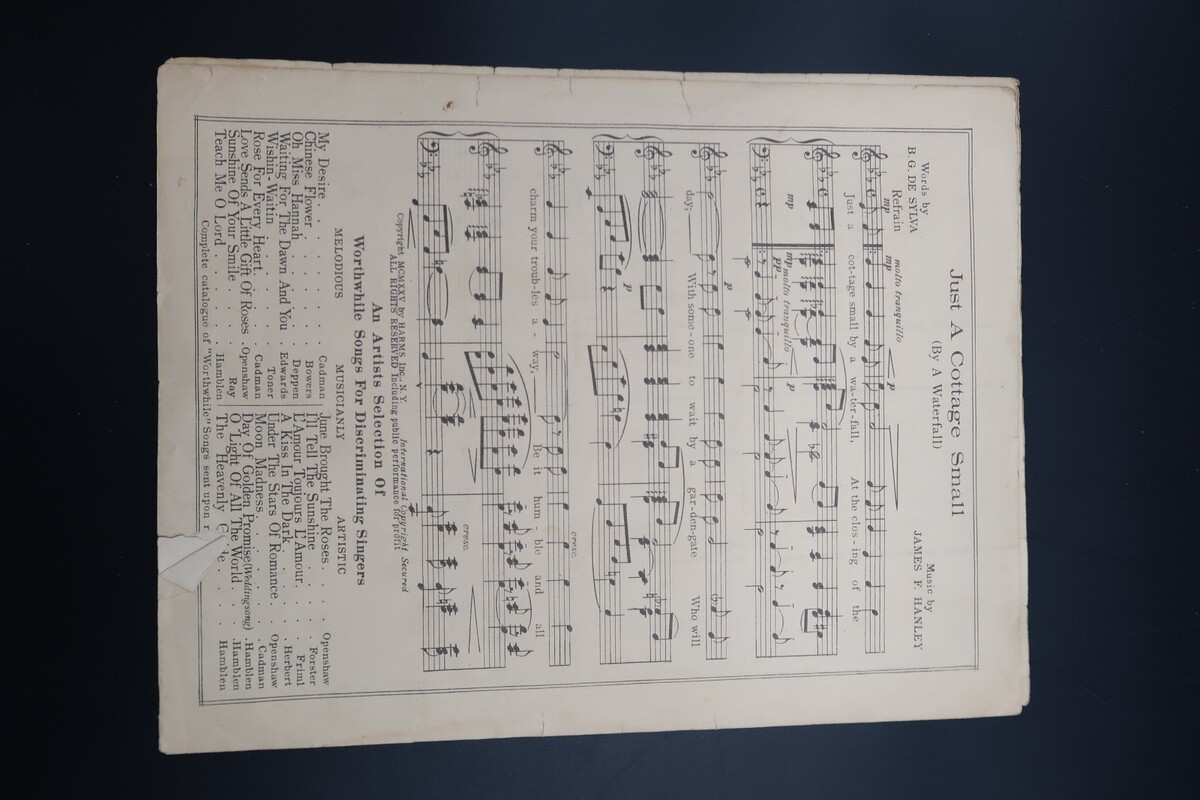 Just A Cottage Small
(By A Waterfall)
Words by
B. G. DE SYLVA
Music by
JAMES F. HANLEY
Refrain
molto tranquillo
mp mp p
Just a cot-tage small by a wa-ter-fall, At the clos-ing of the
mp mp molto tranquillo p
pp
p
day; With some-one to wait by a gar-den-gate Who will
p
cresc.
charm your troub-les a-way, Be it hum-ble and all
cresc.
Copyright MCMXXV by HARMS, Inc., N.Y. International Copyright Secured
ALL RIGHTS RESERVED Including public performance for profit
An Artists Selection Of
Worthwhile Songs For Discriminating Singers
MELODIOUS MUSICIANLY ARTISTIC
My Desire . . . . . Cadman
Chinese Flower . . . . . Bowers
Oh Miss Hannah . . . . . Deppen
Waiting For The Dawn And You . Edwards
Wishin-Waitin . . . . . Toner
Rose For Every Heart . . . . Cadman
Love Sends A Little Gift Of Roses . Openshaw
Sunshine Of Your Smile . . . . Ray
Teach Me O Lord . . . . . Hamblen
June Brought The Roses . . . Openshaw
I'll Tell The Sunshine . . . . Forster
L'Amour Toujours L'Amour . . . Friml
A Kiss In The Dark . . . . Herbert
Under The Stars Of Romance . . Openshaw
Moon Madness . . . . . Cadman
Day Of Golden Promise (Wedding song) . Hamblen
O Light Of All The World . . . Hamblen
The Heavenly . . . Hamblen
Complete catalogue of "Worthwhile" Songs sent upon